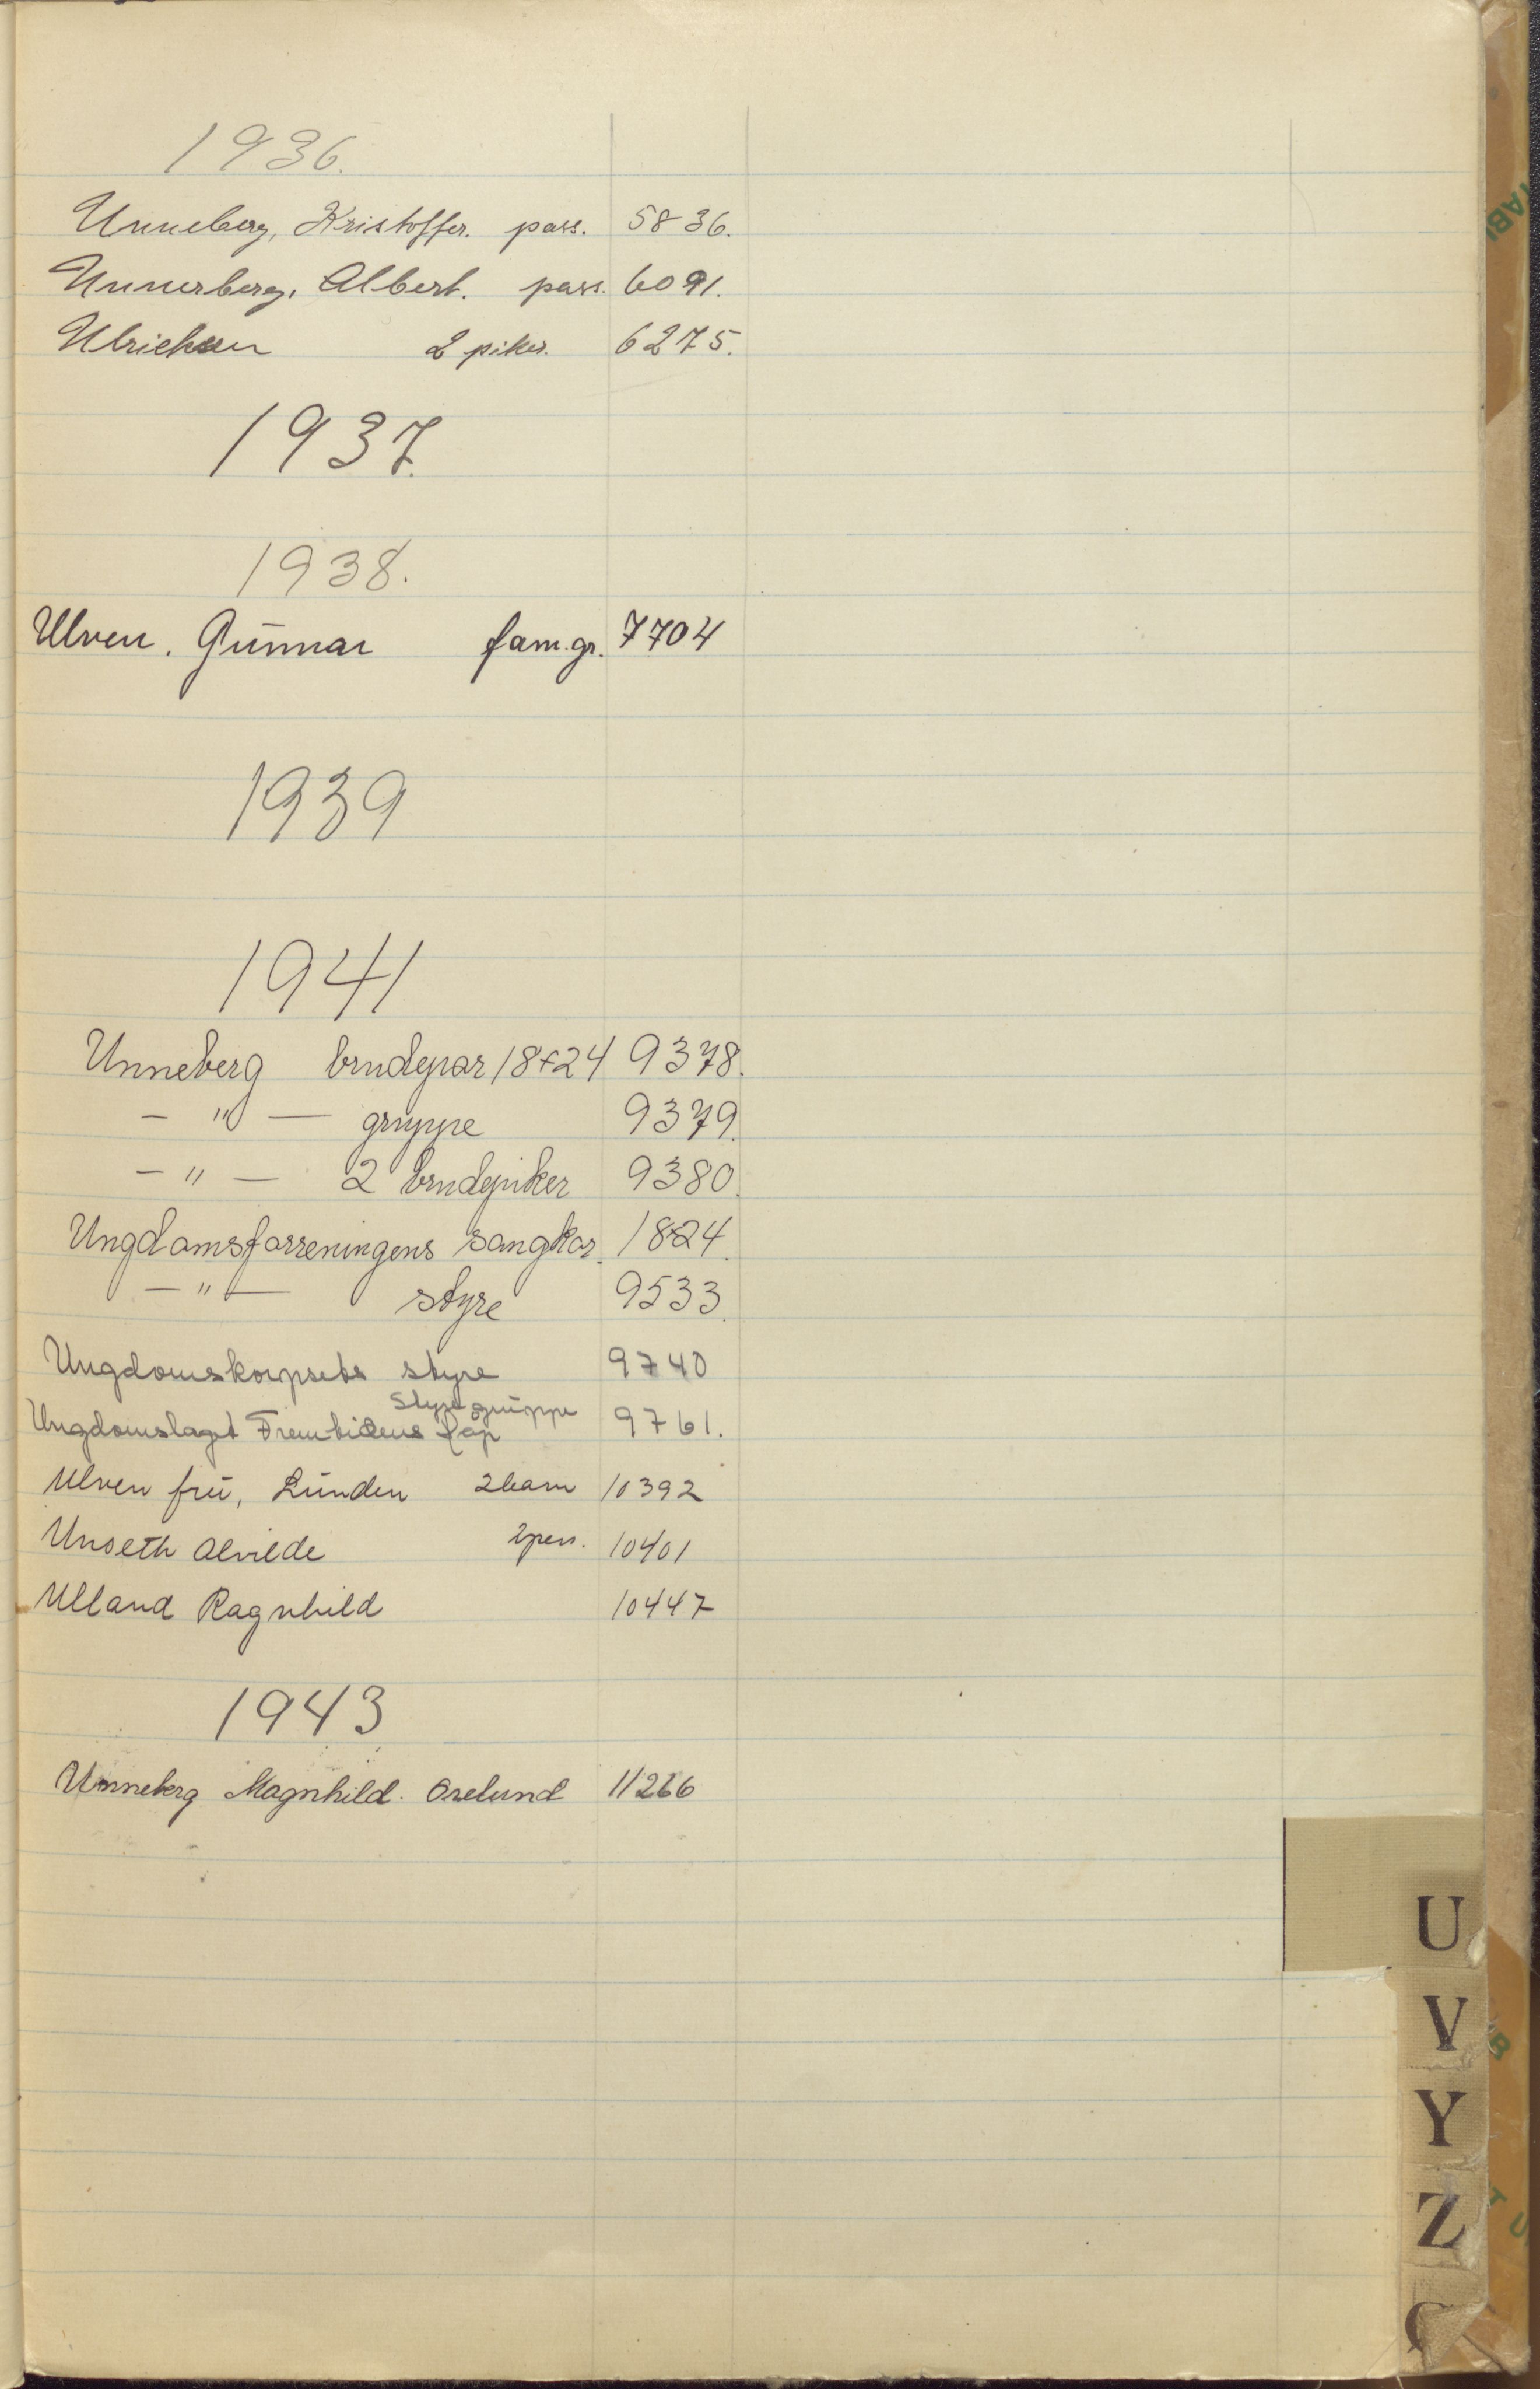 1936.
Unneberg, Kristoffer. pass. 5836.
Unnerberg, Albert. pass. 6091.
Ulricksen 2 piker. 6275.
1937.
1938.
Ulven. Gunnar fam.gr. 7704
1939
1941
Unneberg brudepar 18+24 9378.
– " – gruppe 9379.
– " – 2 brudepiker 9380.
Ungdomsforreningens sangkor. 18+24.
– " – styre 9533.
Ungdomskorpsets styre 9740
Styre gruppe
Ungdomslaget Fremtidens 9761.
Ulven fru, Lunden 2 barn 10392
Unseth Alvilde 2 pers. 10401
Ulland Ragnhild 10447
1943
Unneberg Magnhild. Orelund 11266
U
V
Y
Z